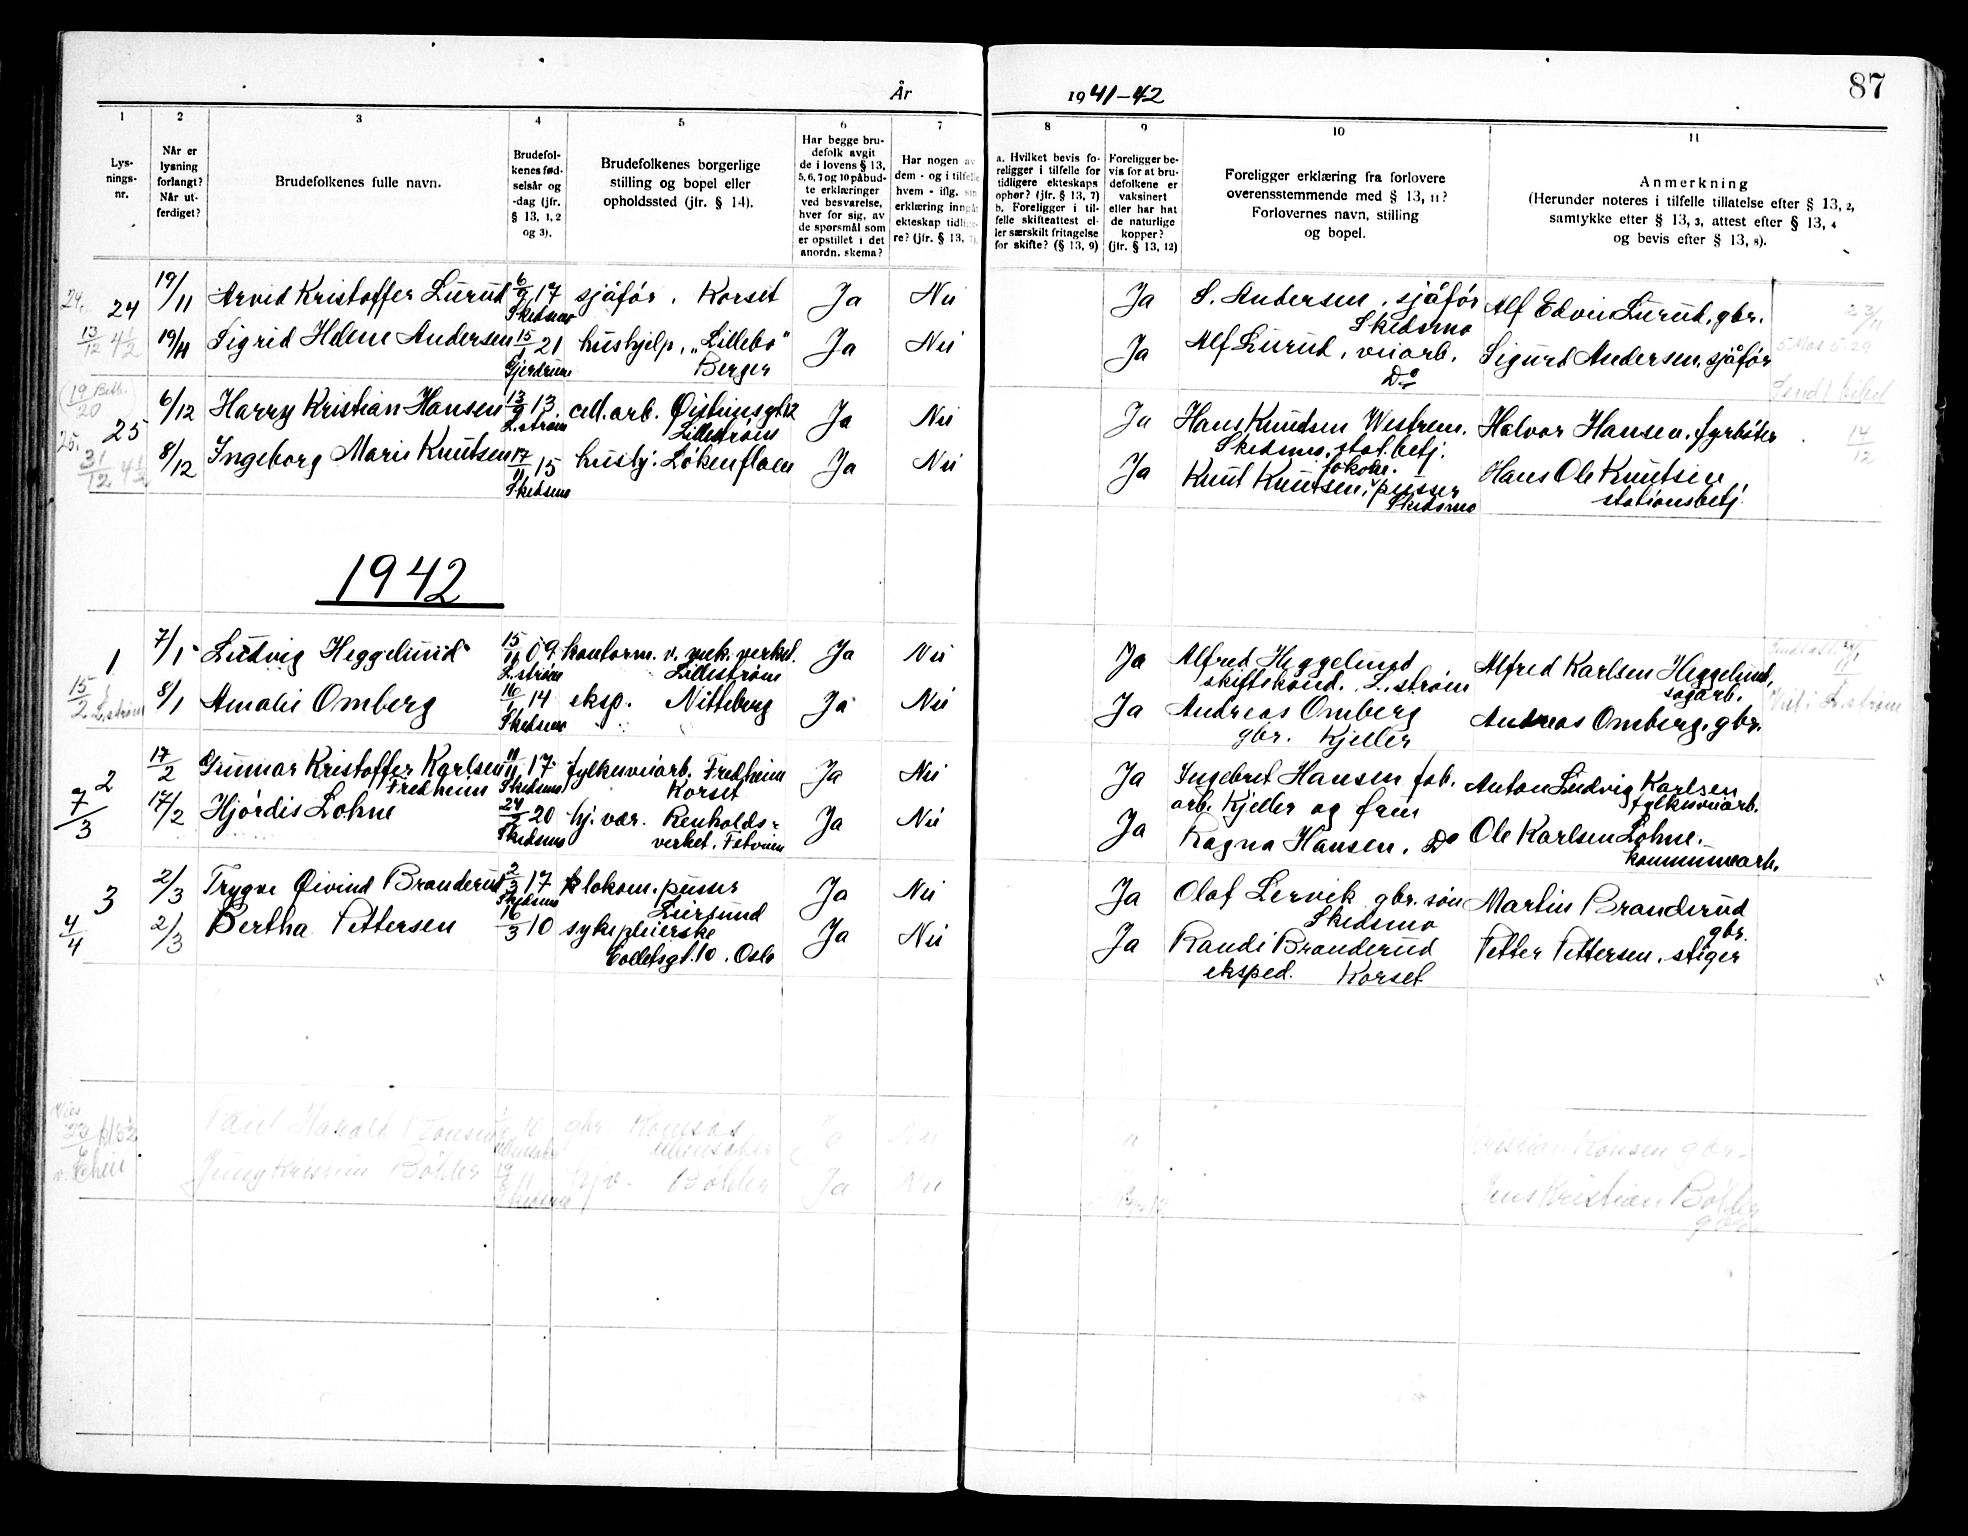 År 1941-42 87
1 2 3 4 5 6 7 8 9 10 11
Lys-
nings-
nr.
Når er
lysning
forlangt?
Når ut-
ferdiget?
Brudefolkenes fulle navn.
Brudefol-
kenes fød-
selsår og
-dag (jfr.
§ 13, 1, 2
og 3).
Brudefolkenes borgerlige
stilling og bopel eller
opholdssted (jfr. § 14).
Har begge bru-
defolk avgit
de i lovens § 13,
5, 6, 7 og 10 påbud-
te erklæringer
ved besvarelse,
hver for sig, av
de spørsmål som
er opstillet i det
anordn. skema?
Har nogen av
dem - og i tilfelle
hvem - iflg. sin
erklæring inngåt
ekteskap tidlige-
re? (jfr. § 13, 7).
a. Hvilket bevis fo-
religger i tilfelle for
tidligere ekteskaps
ophør? (jfr. § 13, 7)
b. Foreligger i til-
felle skifteattest el-
ler særskilt fritagelse
for skifte? (§ 13, 9)
Foreligger be-
vis for at bru-
defolkene er
vaksinert
eller har hat
de naturlige
kopper?
(jfr. § 13, 12)
Foreligger erklæring fra forlovere
overensstemmende med § 13, 11?
Forlovernes navn, stilling
og bopel.
Anmerkning
(Herunder noteres i tilfelle tillatelse efter § 13, 2,
samtykke efter § 13, 3, attest efter § 13, 4
og bevis efter § 13, 8).
24. 24 19/11 Arvid Kristoffer Lurud 6/9 17 sjåfør. Korset Ja Nei Ja S. Andersen, sjåfør Alf Edvin Lurud, gbr. 23/11
Skedsmo Skedsmo
13/12 4½ 19/11 Sigrid Helene Andersen 15/1 21 hushjelp, „Lillebo" Ja Nei Ja Alf Lurud, veiarb. Sigurd Andersen, sjåfør
Gjerdrum Berger Do
25. 25 6/12 Harry Kristian Hansen 13/9 13 cell.arb. Øistensgt 12 Ja Nei Ja Hans Knudsen Westrem. Halvor Hansen, fyrbøter 14/12
L.strøm Lillestrøm Skedsmo, stat.betj.
31/12 4½ 8/12 Ingeborg Marie Knutsen 17/11 15 hushj. Løkenflaen Ja Nei Ja Knut Knutsen, lokom. pusser Hans Ole Knutsen
Skedsmo Skedsmo stationsbetj.
1942
1 7/1 Ludvig Heggelund 15/11 09 kontorm. v. mek. verkst. Ja Nei Ja Alfred Heggelund Alfred Karlsen Heggelund,
L.strøm Lillestrøm skiftskond. L.strøm sagarb.
15/2 L.strøm 8/1 Amalie Omberg 16/1 14 eksp. Nitteberg Ja Nei Ja Andreas Omberg Andreas Omberg, gbr. Viet i L.strøm
Skedsmo gbr. Kjeller
2 17/2 Gunnar Kristoffer Karlsen 11/11 17 fylkesveiarb. Fredheim Ja Nei Ja Ingebret Hansen fab. Anton Ludvig Karlsen
Fredheim Skedsmo Korset arb. Kjeller og frue fylkesveiarb.
7/3 17/2 Hjørdis Lohne 24/2 20 hj. vær. Renholds- Ja Nei Ja Ragna Hansen. Do Ole Karlsen Lohne.
Skedsmo verket. Fetveien kommunearb.
3 2/3 Trygve Øivind Branderud 2/3 17 lokom. pusser Ja Nei Ja Olaf Lervik gbr. søn Martin Branderud
Skedsmo Leirsund Skedsmo gbr.
4/4 2/3 Bertha Pettersen 16/3 10 sykepleierske Ja Nei Ja Randi Branderud Petter Pettersen, stiger
Colletsgt. 10. Oslo eksped. Korset
Harald gbr. Nei gbr.
Kristian Bøhler 19 hjv. Bøhler Ja Nei Jens Kristian Bøhler
Skedsmo gbr.